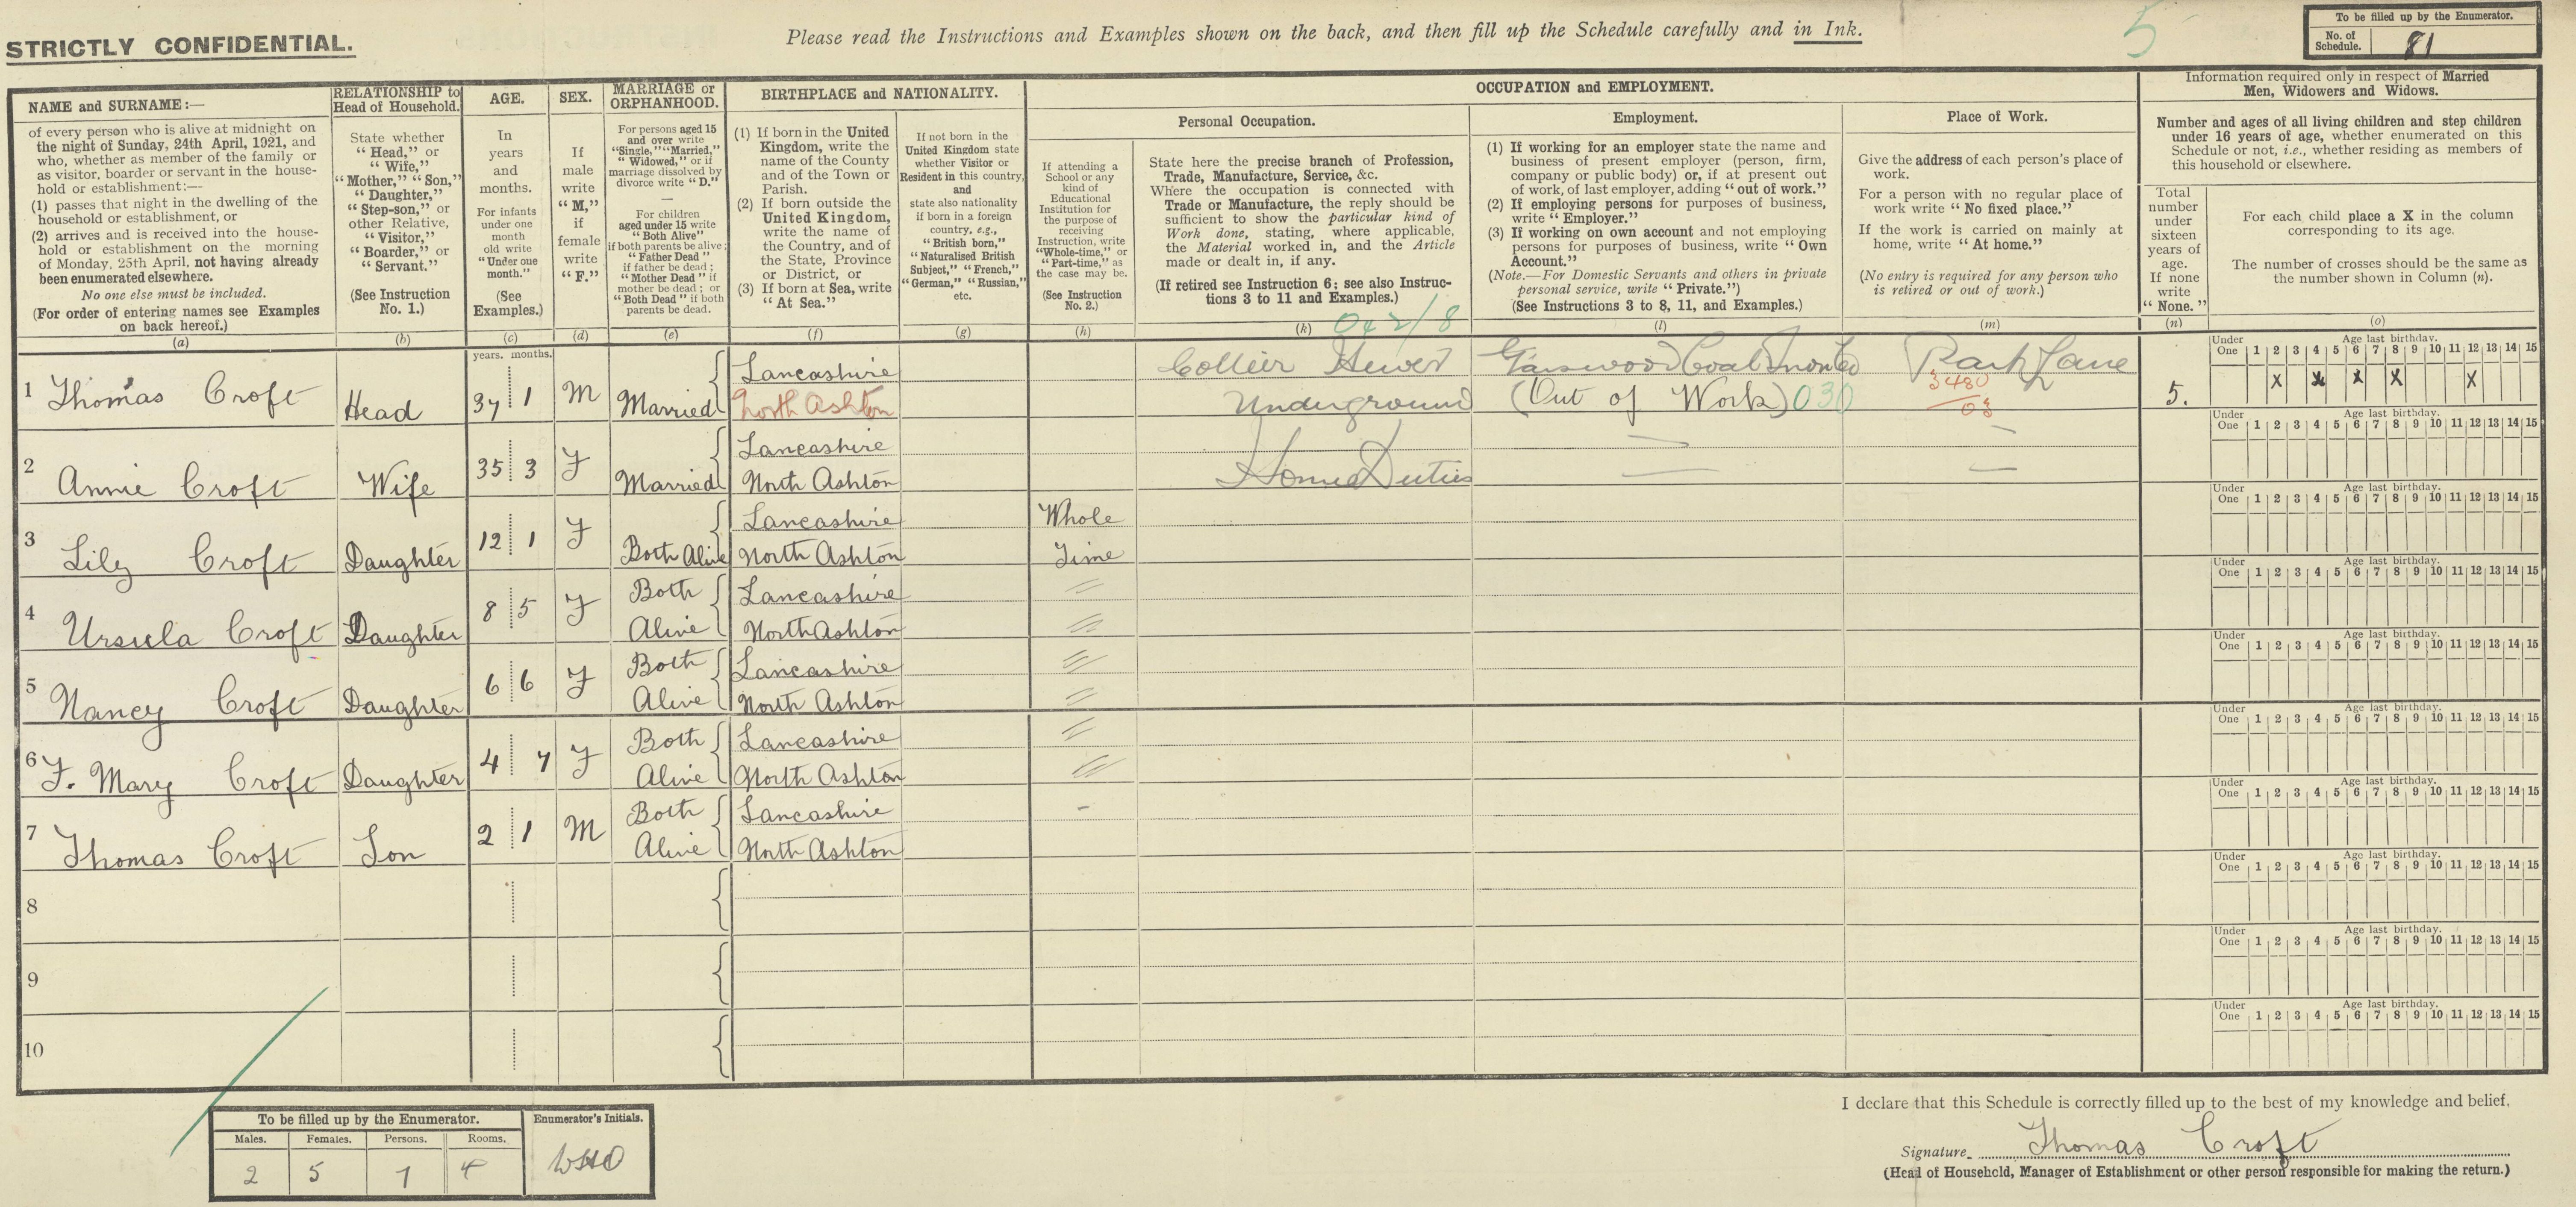 STRICTLY CONFIDENTIAL.
Please read the Instructions and Examples shown on the back, and then fill up the Schedule carefully and in Ink.
5
To be filled up by the Enumerator.
No. of Schedule. 81
NAME and SURNAME:—
of every person who is alive at midnight on
the night of Sunday, 24th April, 1921, and
who, whether as member of the family or
as visitor, boarder or servant in the house-
hold or establishment:—
(1) passes that night in the dwelling of the
household or establishment, or
(2) arrives and is received into the house-
hold or establishment on the morning
of Monday, 25th April, not having already
been enumerated elsewhere.
No one else must be included.
(For order of entering names see Examples
on back hereof.)
(a)
RELATIONSHIP to
Head of Household.
State whether
"Head," or
"Wife,"
"Mother," "Son,"
"Daughter,"
"Step-son," or
other Relative,
"Visitor,"
"Boarder," or
"Servant."
(See Instruction
No. 1.)
(b)
AGE.
In
years
and
months.
For infants
under one
month
old write
"Under one
month."
(See
Examples.)
(c)
SEX.
If
male
write
"M,"
if
female
write
"F."
(d)
MARRIAGE or
ORPHANHOOD.
For persons aged 15
and over write
"Single," "Married,"
"Widowed," or if
marriage dissolved by
divorce write "D."
—
For children
aged under 15 write
"Both Alive"
if both parents be alive;
"Father Dead"
if father be dead;
"Mother Dead" if
mother be dead; or
"Both Dead" if both
parents be dead.
(e)
BIRTHPLACE and NATIONALITY.
(1) If born in the United
Kingdom, write the
name of the County
and of the Town or
Parish.
(2) If born outside the
United Kingdom,
write the name of
the Country, and of
the State, Province
or District, or
(3) If born at Sea, write
"At Sea."
(f)
If not born in the
United Kingdom state
whether Visitor or
Resident in this country,
and
state also nationality
if born in a foreign
country, e.g.,
"British born,"
"Naturalised British
Subject," "French,"
"German," "Russian,"
etc.
(g)
OCCUPATION and EMPLOYMENT.
If attending a
School or any
kind of
Educational
Institution for
the purpose of
receiving
Instruction, write
"Whole-time," or
"Part-time," as
the case may be.
(See Instruction
No. 2.)
(h)
Personal Occupation.
State here the precise branch of Profession,
Trade, Manufacture, Service, &c.
Where the occupation is connected with
Trade or Manufacture, the reply should be
sufficient to show the particular kind of
Work done, stating, where applicable,
the Material worked in, and the Article
made or dealt in, if any.
(If retired see Instruction 6; see also Instruc-
tions 3 to 11 and Examples.)
(k)
Employment.
(1) If working for an employer state the name and
business of present employer (person, firm,
company or public body) or, if at present out
of work, of last employer, adding "out of work."
(2) If employing persons for purposes of business,
write "Employer."
(3) If working on own account and not employing
persons for purposes of business, write "Own
Account."
(Note.—For Domestic Servants and others in private
personal service, write "Private.")
(See Instructions 3 to 8, 11, and Examples.)
(l)
Place of Work.
Give the address of each person's place of
work.
For a person with no regular place of
work write "No fixed place."
If the work is carried on mainly at
home, write "At home."
(No entry is required for any person who
is retired or out of work.)
(m)
Information required only in respect of Married
Men, Widowers and Widows.
Number and ages of all living children and step children
under 16 years of age, whether enumerated on this
Schedule or not, i.e., whether residing as members of
this household or elsewhere.
Total
number
under
sixteen
years of
age.
If none
write
"None."
(n)
For each child place a X in the column
corresponding to its age.
The number of crosses should be the same as
the number shown in Column (n).
(o)
years. months.
1 Thomas Croft Head 37 1 M Married Lancashire North Ashton Collier Hewer Underground (Out of Work) 030 Park Lane 3480 03 5.
Under One 1 2 3 4 5 6 7 8 9 10 11 12 13 14 15
Age last birthday.
X X X X X
2 Annie Croft Wife 35 3 F Married Lancashire North Ashton Home Duties — — — —
Under One 1 2 3 4 5 6 7 8 9 10 11 12 13 14 15
Age last birthday.
3 Lily Croft Daughter 12 1 F Both Alive Lancashire North Ashton Whole Time
Under One 1 2 3 4 5 6 7 8 9 10 11 12 13 14 15
Age last birthday.
4 Ursula Croft Daughter 8 5 F Both Alive Lancashire North Ashton
Under One 1 2 3 4 5 6 7 8 9 10 11 12 13 14 15
Age last birthday.
5 Nancy Croft Daughter 6 6 F Both Alive Lancashire North Ashton
Under One 1 2 3 4 5 6 7 8 9 10 11 12 13 14 15
Age last birthday.
6 F. Mary Croft Daughter 4 7 F Both Alive Lancashire North Ashton
Under One 1 2 3 4 5 6 7 8 9 10 11 12 13 14 15
Age last birthday.
7 Thomas Croft Son 2 1 M Both Alive Lancashire North Ashton -
Under One 1 2 3 4 5 6 7 8 9 10 11 12 13 14 15
Age last birthday.
8
Under One 1 2 3 4 5 6 7 8 9 10 11 12 13 14 15
Age last birthday.
9
Under One 1 2 3 4 5 6 7 8 9 10 11 12 13 14 15
Age last birthday.
10
Under One 1 2 3 4 5 6 7 8 9 10 11 12 13 14 15
Age last birthday.
To be filled up by the Enumerator.
Males. Females. Persons. Rooms.
2 5 7 4
Enumerator's Initials.
I declare that this Schedule is correctly filled up to the best of my knowledge and belief.
Signature Thomas Croft
(Head of Household, Manager of Establishment or other person responsible for making the return.)